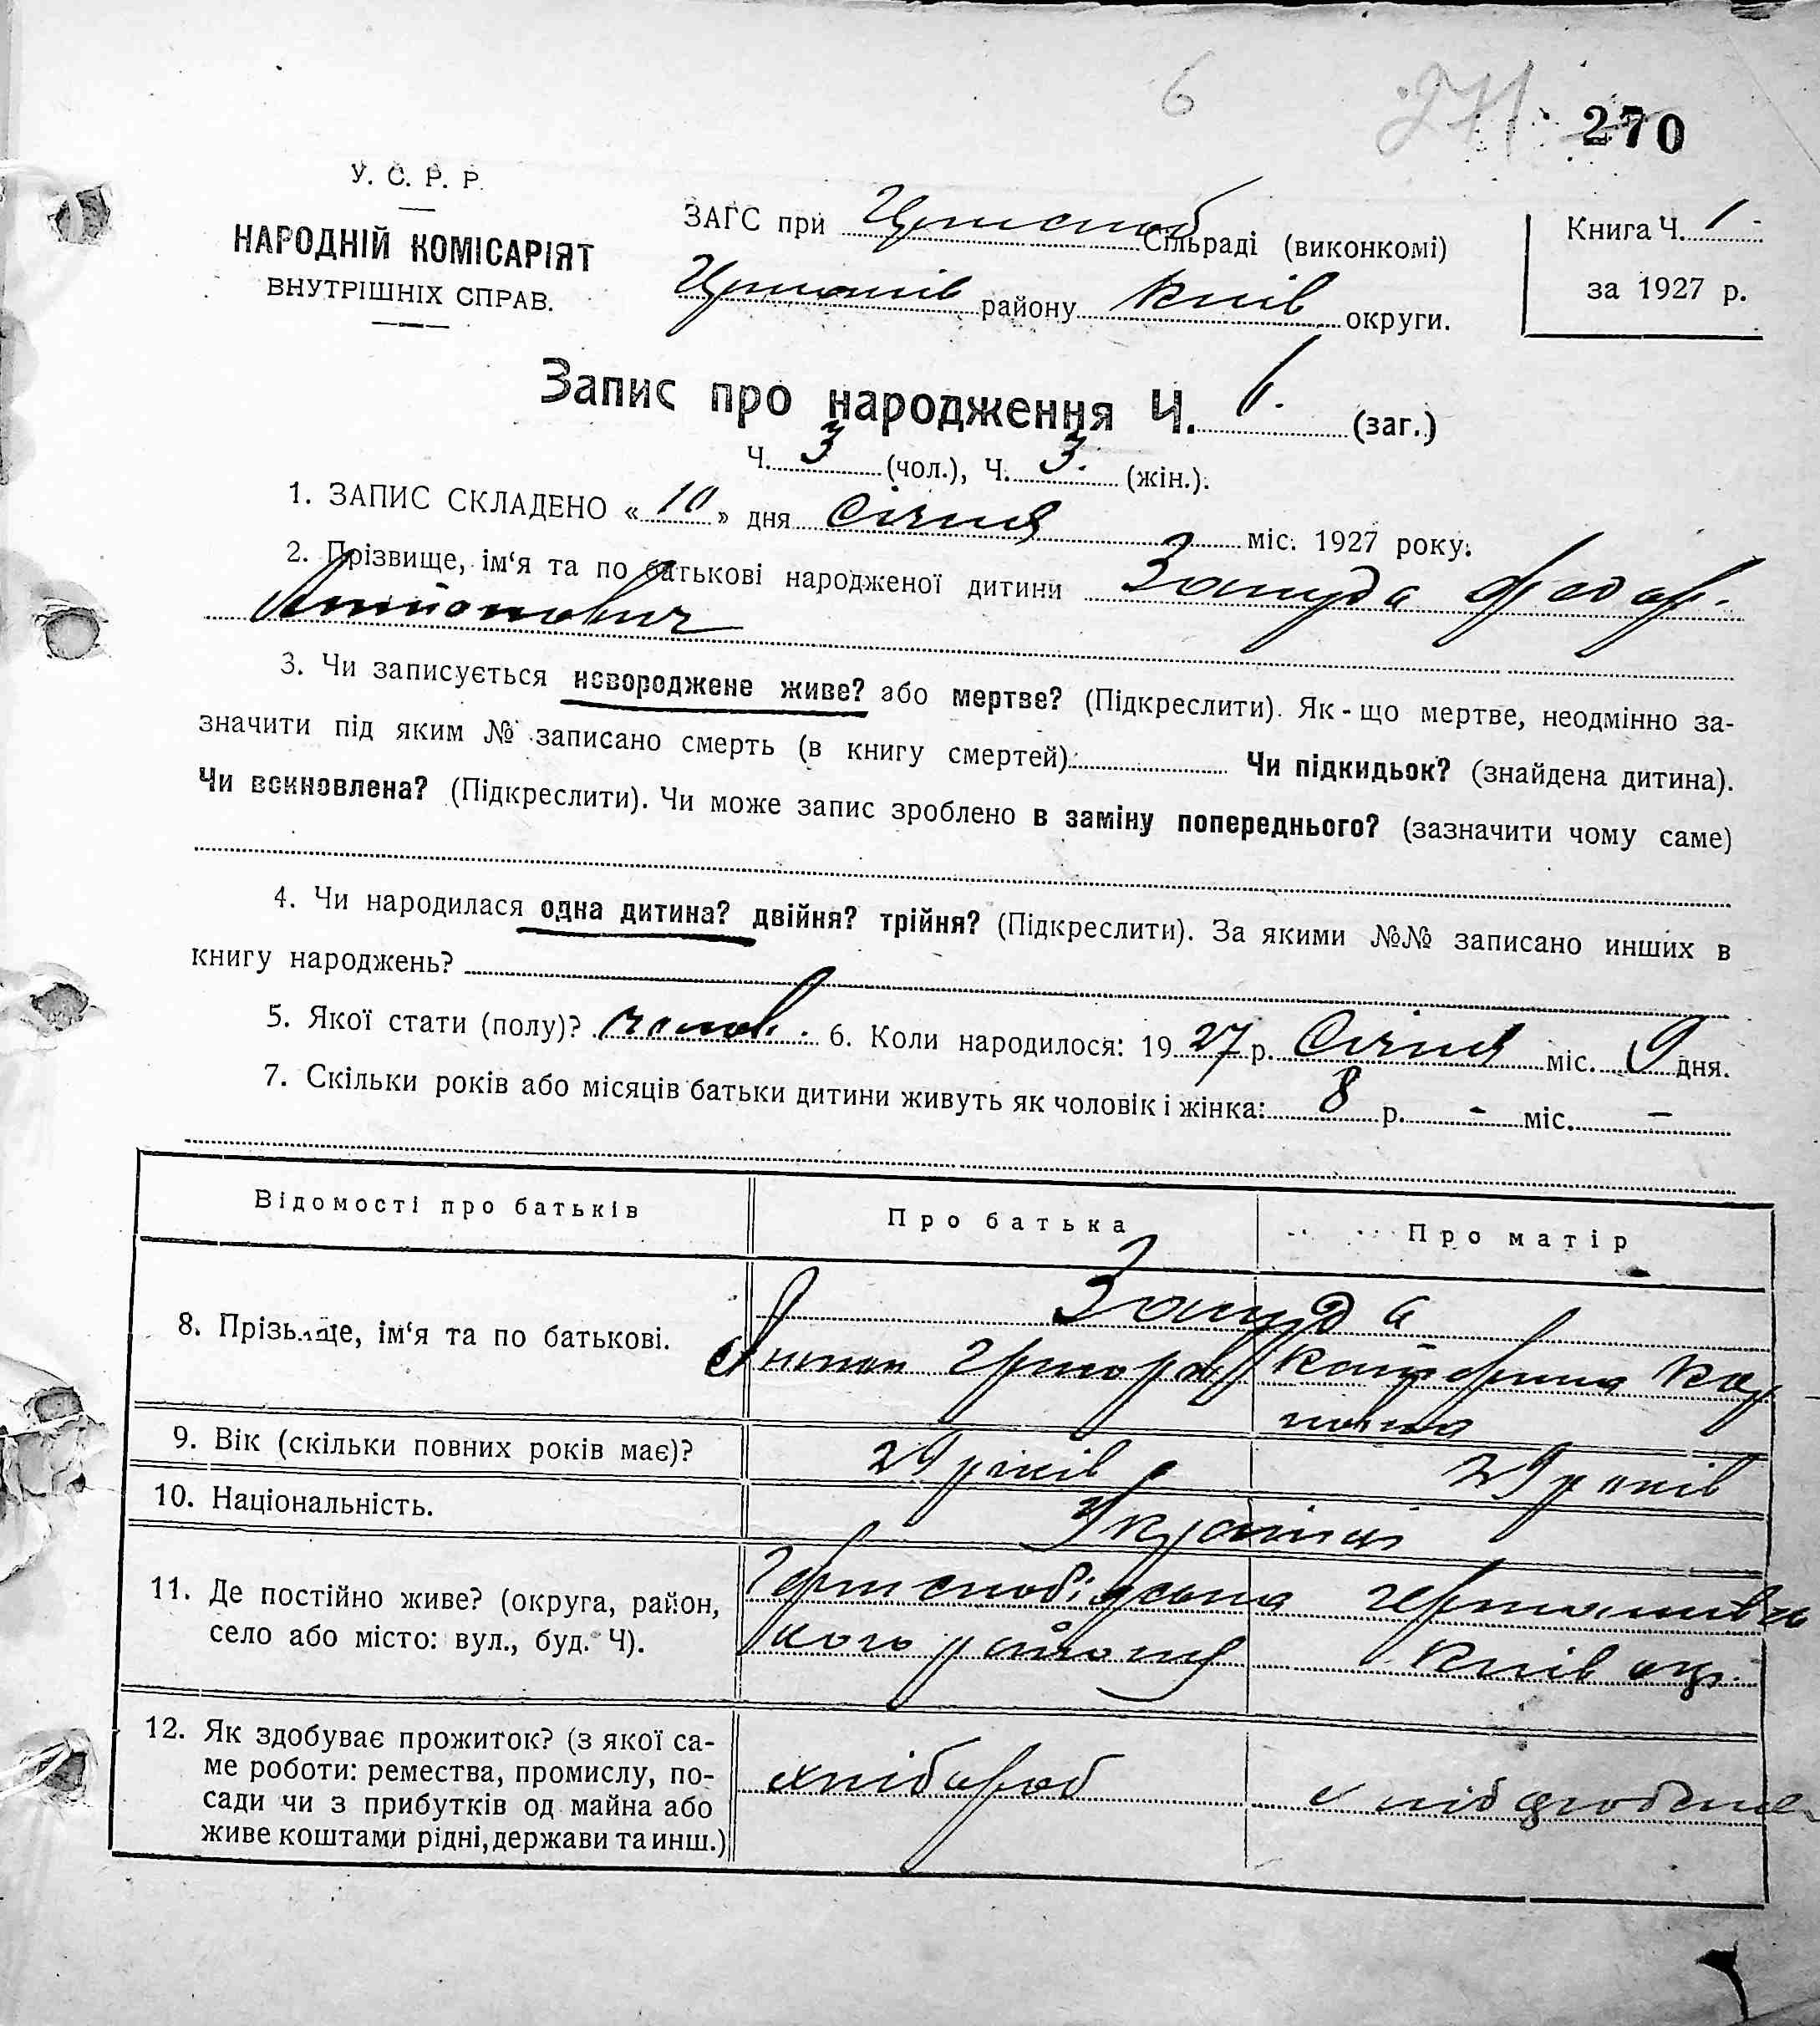 6
271 270
У. С. Р. Р.
НАРОДНІЙ КОМІСАРІЯТ
ВНУТРІШНІХ СПРАВ.
ЗАГС при Сільраді (виконкомі)
району Київ округи.
Книга Ч. 1
за 1927 р.
Запис про народження Ч. 6. (заг.)
Ч. 3 (чол.), Ч. 3. (жін.).
1. ЗАПИС СКЛАДЕНО « 10 » дня Січня міс. 1927 року.
2. Прізвище, ім‘я та по батькові народженої дитини Зануда Федор.
Антонович
3. Чи записується новороджене живе? або мертве? (Підкреслити). Як-що мертве, неодмінно за-
значити під яким № записано смерть (в книгу смертей): Чи підкидьок? (знайдена дитина).
Чи всиновлена? (Підкреслити). Чи може запис зроблено в заміну попереднього? (зазначити чому саме)
4. Чи народилася одна дитина? двійня? трійня? (Підкреслити). За якими №№ записано инших в
книгу народжень?
5. Якої стати (полу)? чолов. 6. Коли народилося: 19 27 р. Січня міс. 9 дня.
7. Скільки років або місяців батьки дитини живуть як чоловік і жінка: 8 р. - міс. -
Відомості про батьків Про батька Про матір
8. Прізьвище, ім‘я та по батькові.
Зануда
Антон Григоров Катерина Кар
повна
9. Вік (скільки повних років має)? 29 років 29 років
10. Національність. Українці
11. Де постійно живе? (округа, район,
село або місто: вул., буд. Ч).
кого району Київ окр.
12. Як здобуває прожиток? (з якої са-
ме роботи: ремества, промислу, по-
сади чи з прибутків од майна або
живе коштами рідні, держави та инш.)
хлібороб